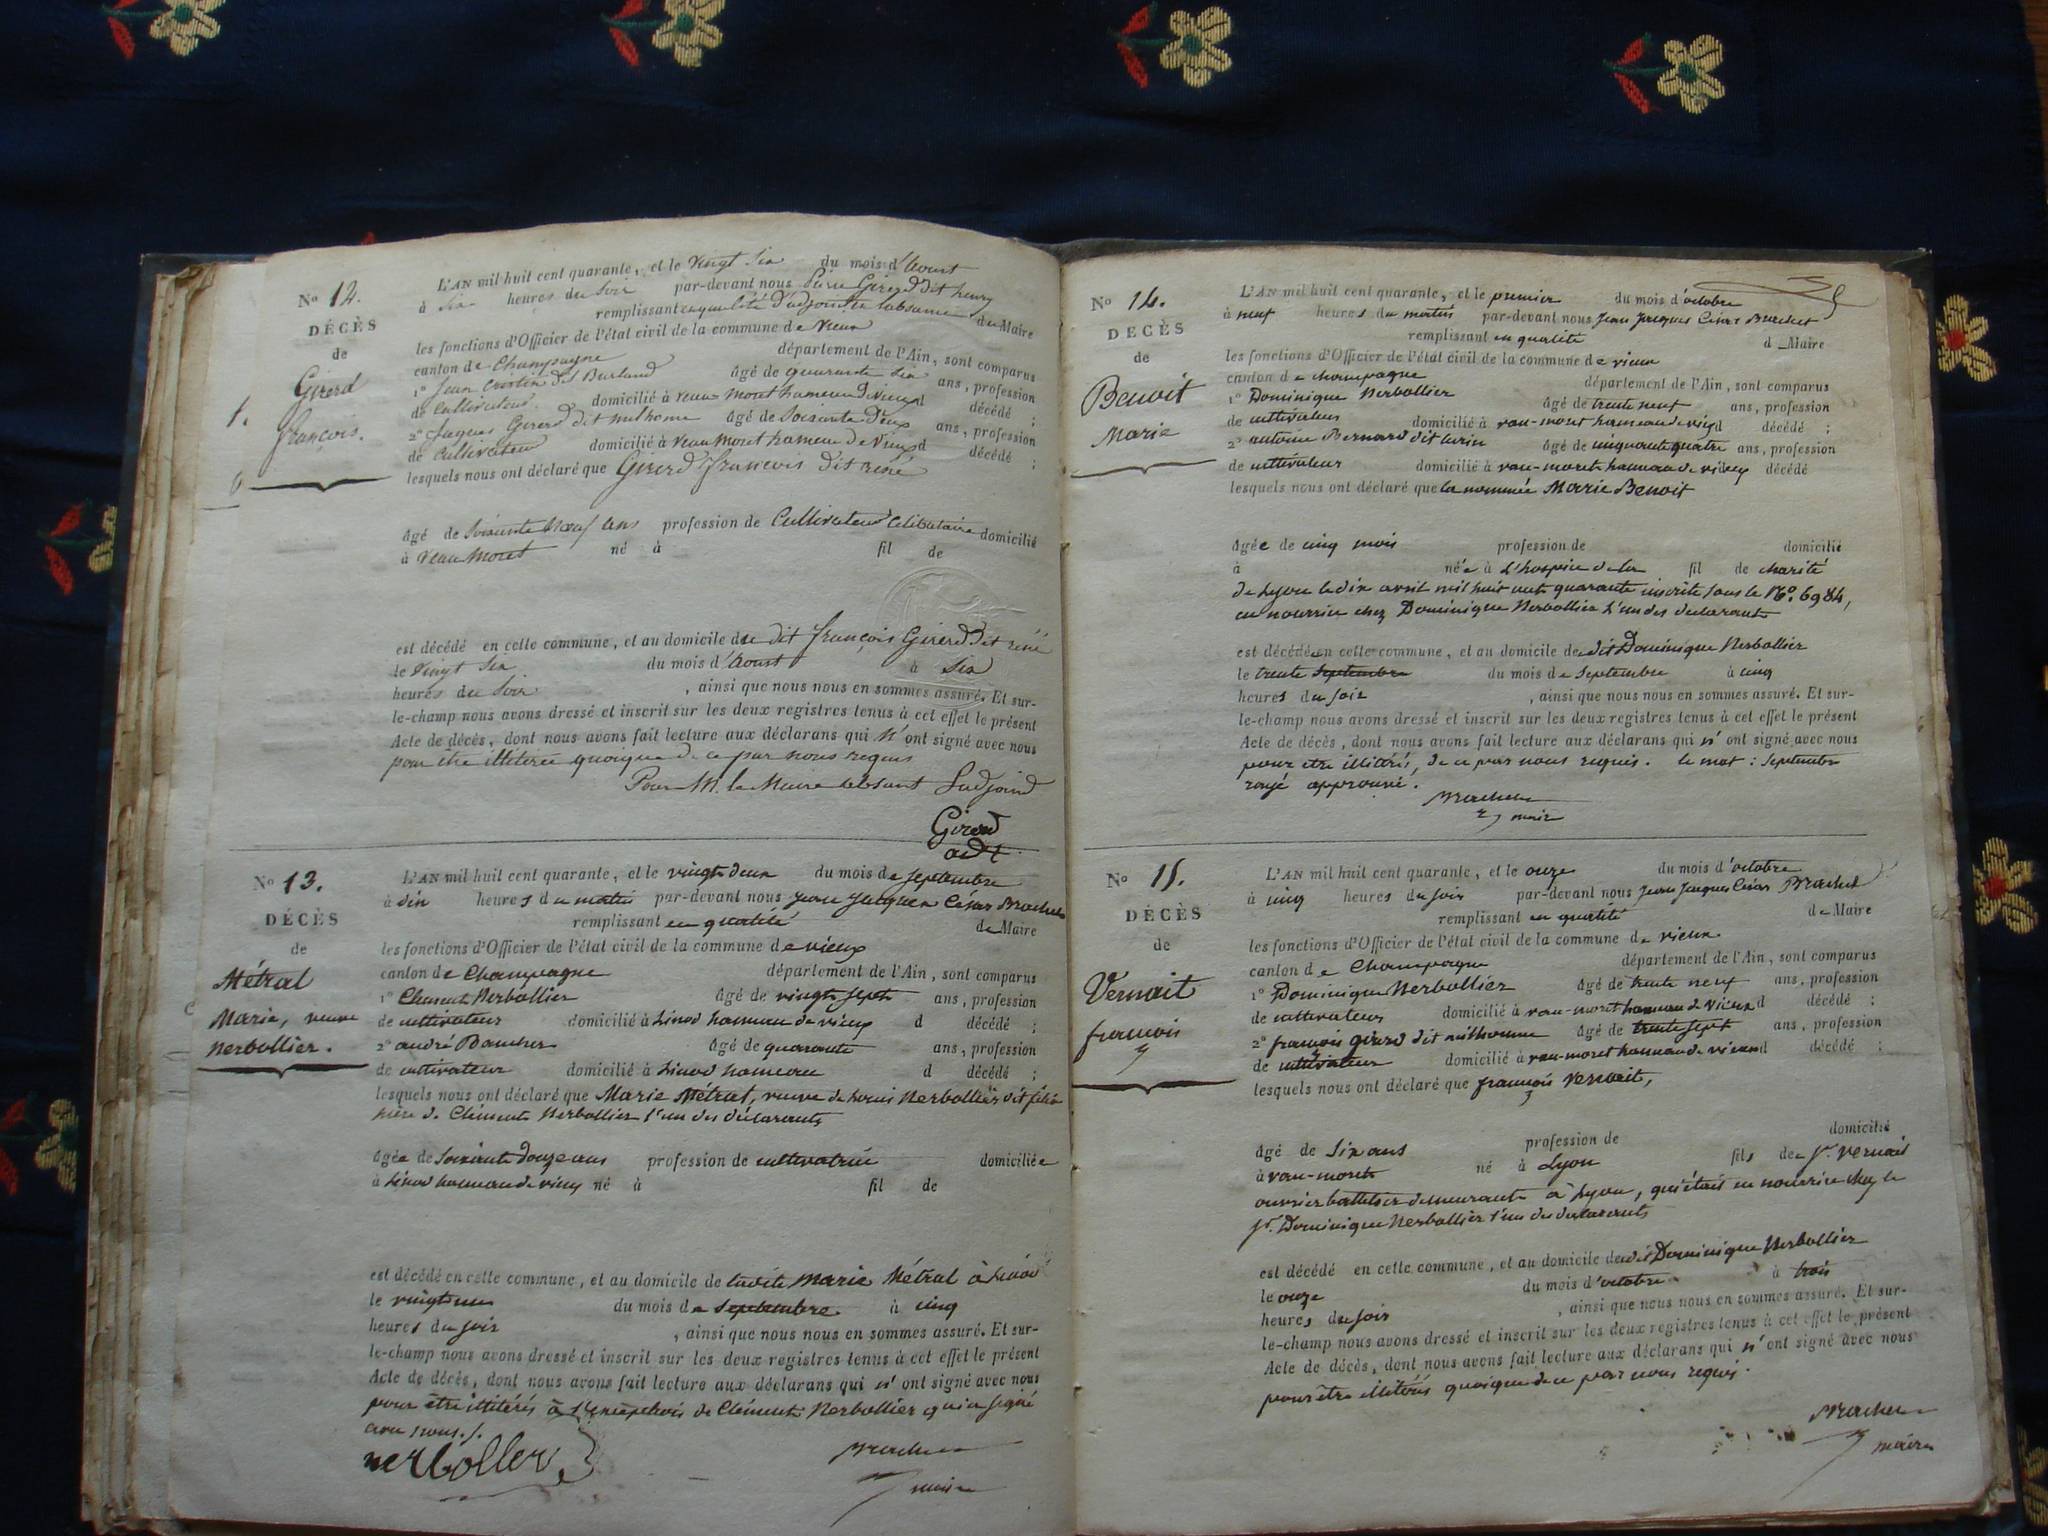 No 12.
DÉCÈS
de
Girerd
1.
françois.
L'AN mil huit cent quarante, et le vingt six du mois d'Aoust
à Six heures du Soir par-devant nous Pierre Girerd dit henry
remplissant en qualité d'adjoint en labsance du Maire
les fonctions d'Officier de l'état civil de la commune de vieux
canton de Champagne département de l'Ain, sont comparus
1° Jean dit Burland âgé de quarante six ans, profession
de Cultivateur domicilié à veau moret hameau de vieux d décédé ;
2° Jaques Girerd dit milhome âgé de Soisante Deux ans, profession
de Cultivateur domicilié à veau Moret hameau de vieux d décédé ;
lesquels nous ont déclaré que Girerd françois dit réné
âgé de Soisante Neuf ans profession de Cultivateur Celibataire domicilié
à veau Moret né à fil de
est décédé en cette commune, et au domicile du dit françois Girerd dit réné
le vingt Six du mois d'Aoust à Six
heures du Soir , ainsi que nous nous en sommes assuré. Et sur-
le-champ nous avons dressé et inscrit sur les deux registres tenus à cet effet le présent
Acte de décès, dont nous avons fait lecture aux déclarans qui N'ont signé avec nous
pour être illiterée quoique de ce par nous requis
Pour M. le Maire absant Ladjoind
Girerd
adt
No 13.
DÉCÈS
de
Métral
Marie, veuve
Nerbollier.
L'AN mil huit cent quarante, et le vingt deux du mois de septembre
à dix heures du matin par-devant nous jean jacques César Brachet
remplissant en qualité de Maire
les fonctions d'Officier de l'état civil de la commune de vieux
canton de Champagne département de l'Ain, sont comparus
1° Clément Nerbollier âgé de vingt sept ans, profession
de cultivateur domicilié à Linod hameau de vieux d décédé ;
2° andré âgé de quarante ans, profession
de cultivateur domicilié à Linod hameau d décédé ;
lesquels nous ont déclaré que Marie Métral, veuve de Louis Nerbollier dit
mère de Clément Nerbollier l'un des déclarants
âgée de soixante douze ans profession de cultivatrice domiciliée
à Linod hameau de vieux né à fil de
est décédé en cette commune, et au domicile de ladite Marie Métral à Linod
le vingt un du mois de septembre à cinq
heures du soir , ainsi que nous nous en sommes assuré. Et sur-
le-champ nous avons dressé et inscrit sur les deux registres tenus à cet effet le présent
Acte de décès, dont nous avons fait lecture aux déclarans qui n'ont signé avec nous
pour être illitérés à l'exception de Clément Nerbollier qui a signé
avec nous./.
nerbollier
Brachet
maire
No 14.
DÉCÈS
de
Benoit
Marie
L'AN mil huit cent quarante, et le premier du mois d'octobre
à neuf heures du matin par-devant nous Jean Jacques César Brachet
remplissant en qualité d Maire
les fonctions d'Officier de l'état civil de la commune de vieux
canton de champagne département de l'Ain, sont comparus
1° Dominique Nerbollier âgé de trente neuf ans, profession
de cultivateur domicilié à vau-moret hameau de vieux d décédé ;
2° antoine Bernard dit turin âgé de cinquante quatre ans, profession
de cultivateur domicilié à vau-moret hameau de vieux décédé
lesquels nous ont déclaré que la nommée Marie Benoit
âgée de cinq mois profession de domicilié
à née à L'hospice de la fil de charité
de Lyon le dix avril mil huit cent quarante inscrite sous le N° 6984,
en nourrice chez Dominique Nerbollier l'un des déclarants
est décédée en cette commune, et au domicile de dit Dominique Nerbollier
le trente septembre du mois de septembre à cinq
heures du soir , ainsi que nous nous en sommes assuré. Et sur-
le-champ nous avons dressé et inscrit sur les deux registres tenus à cet effet le présent
Acte de décès, dont nous avons fait lecture aux déclarans qui n'ont signé avec nous
pour être illitérés, de ce par nous requis. le mot : septembre
rayé approuvé.
Brachet
maire
No 15.
DÉCÈS
de
Vernait
françois
L'AN mil huit cent quarante, et le onze du mois d'octobre
à cinq heures du soir par-devant nous Jean Jacques César Brachet
remplissant en qualité de Maire
les fonctions d'Officier de l'état civil de la commune de vieux
canton de Champagne département de l'Ain, sont comparus
1° Dominique Nerbollier âgé de trente neuf ans, profession
de cultivateur domicilié à vau-moret hameau de vieux d décédé ;
2° françois girerd dit milhomme âgé de trente sept ans, profession
de cultivateur domicilié à vau-moret hameau de vieux d décédé ;
lesquels nous ont déclaré que françois vernait,
âgé de Six ans profession de domicilié
à vau-moret né à Lyon fils de Sr. vernait
ouvrier demeurant à Lyon, qui était en nourrice chez le
Sr. Dominique Nerbollier l'un des déclarants
est décédé en cette commune, et au domicile de dit Dominique Nerbollier
le onze du mois d'octobre à trois
heures du soir , ainsi que nous nous en sommes assuré. Et sur-
le-champ nous avons dressé et inscrit sur les deux registres tenus à cet effet le présent
Acte de décès, dont nous avons fait lecture aux déclarans qui n'ont signé avec nous
pour être illitérés quoique de ce par nous requis.
Brachet
maire